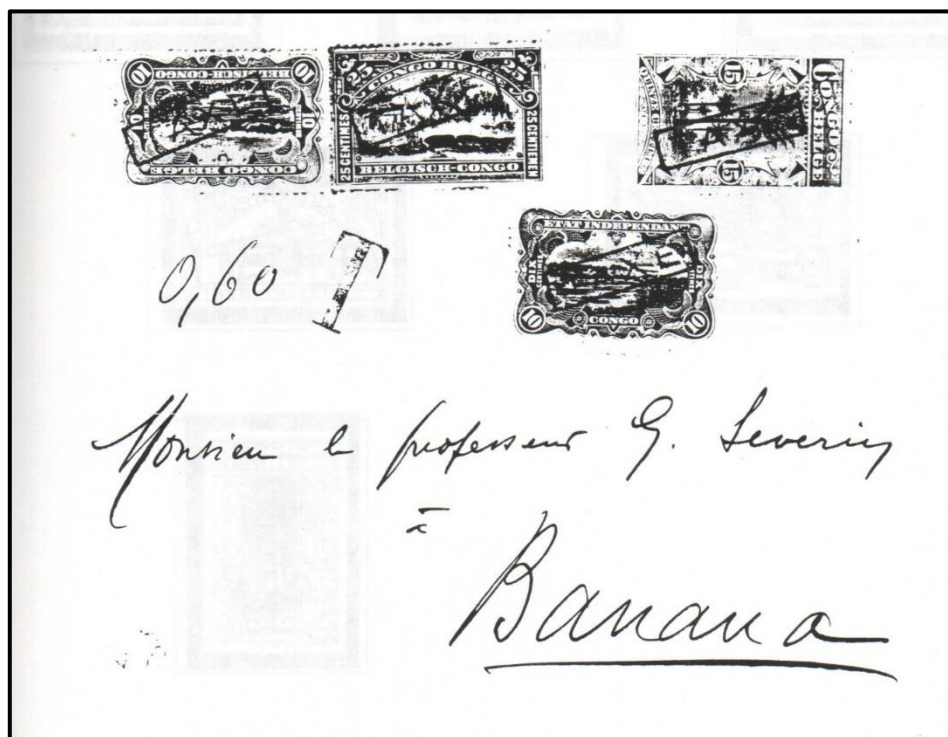 10 BELGISCH-CONGO 10
CONGO BELGE
25 CONGO BELGE 25
25 CENTIMES 25 CENTIEM
BELGISCH-CONGO
15 CONGO BELGE 15
TAXES
ETAT INDEPENDANT
DIX
10 CONGO 10
0,60 T
Monsieur le professeur G. Severin
à
Banana